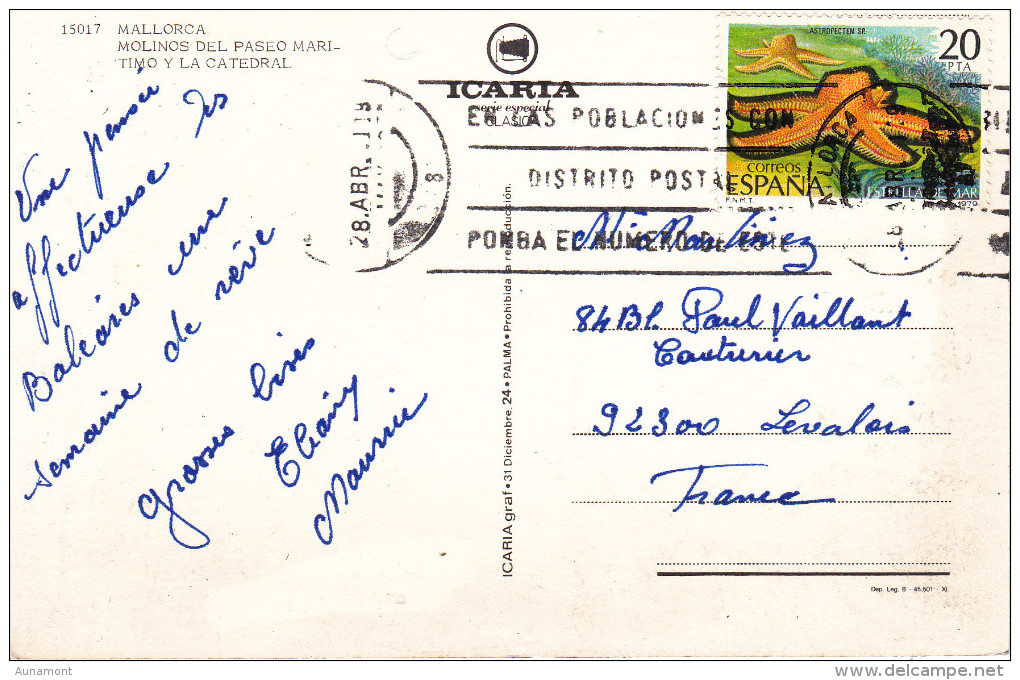 15017 MALLORCA
MOLINOS DEL PASEO MARI-
TIMO Y LA CATEDRAL
Une pensée
affectueuse des
Baléares une
semaine de rêve
grosses bises
Eliany
Maurice
ICARIA
serie especial
CLASICA
28.ABR.
8
EN LAS POBLACIONES CON
DISTRITO POSTAL
PONGA EL NUMERO DE ESTE
ASTROPECTEN SP.
20
PTA
correos
ESPAÑA
F.N.M.T.
ESTRELLA DE MAR
1979
MALLORCA
ABR
Martinez
84 Bl. Paul Vaillant
Couturier
92300 Levalois
France
ICARIA graf • 31 Diciembre, 24 • PALMA • Prohibida la reproducción.
Dep. Leg. B - 45.501 - XI
Aunamont
www.delcampe.net